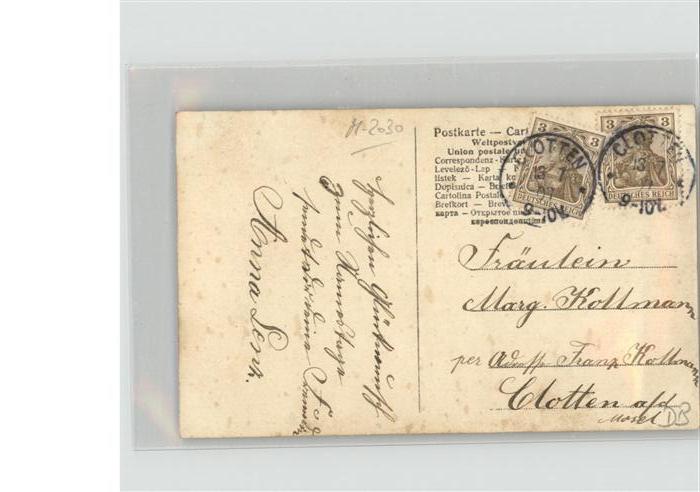 H-2030
Postkarte — Cart
Weltpostve
Union postale u
Correspondenz-Kart
Levelező-Lap
listek — Karta ko
Dopisnica —
Cartolina Postale
Brefkort — Brev
карта — Открытое пи
корреспонденціи
3 3
DEUTSCHES REICH
CLOTTEN
13 7
9-10V.
3 3
DEUTSCHES REICH
CLOTTEN
13
9-10V.
Herzlichen Glückwunsch
zum Namenstage
sendet dir deine
Anna Lenz.
Fräulein
Marg. Kollmann
per Adresse Franz Kollmann
Clotten a/d
Mosel
DB